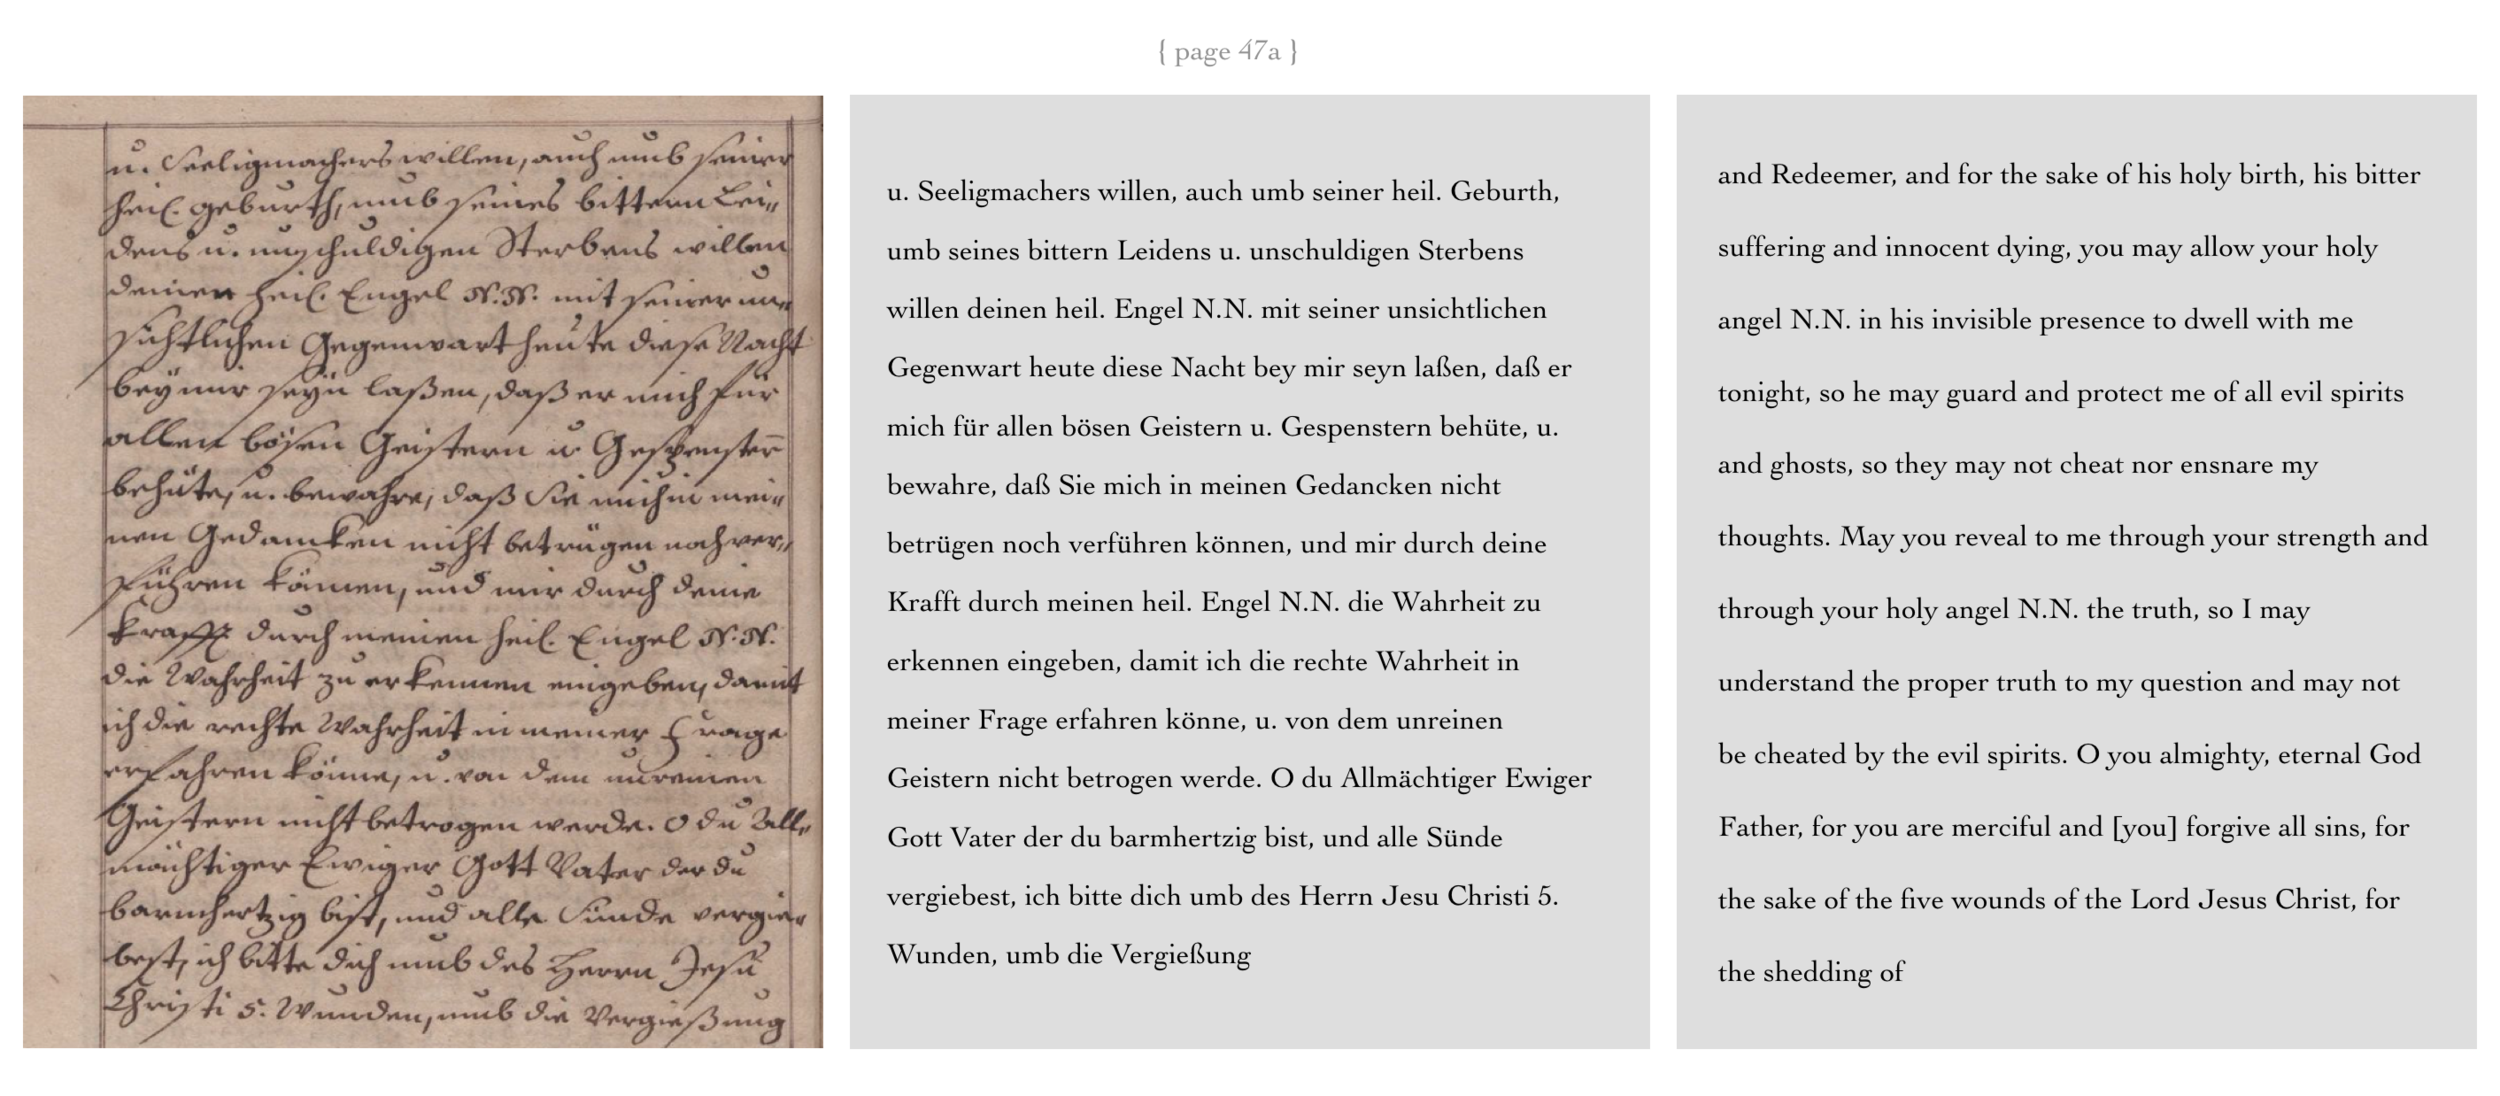 { page 47a }
u. Seeligmachers willen, auch umb seiner
heil. geburth, umb seines bittern Lei„
dens u. unschuldigen Sterbens willen
deinen heil. Engel N.N. mit seiner un„
sichtlichen Gegenwart heute diese Nacht
bey mir seÿn laßen, daß er mich für
allen bösen Geistern u. Gespenstern̅
behüte, u. bewahre, daß Sie mich in mei„
nen Gedancken nicht betrügen noch ver„
führen können, und mir durch deine
Krafft durch meinen heil. Engel N.N.
die Wahrheit zu erkennen eingeben, damit
ich die rechte Wahrheit in meiner Frage
erfahren könne, u. von dem unreinen
Geistern nicht betrogen werde. O du All„
mächtiger Ewiger Gott Vater der du
barmhertzig bist, und alle Sünde vergie„
best, ich bitte dich umb des Herrn Jesu
Christi 5. Wunden, umb die Vergießung
u. Seeligmachers willen, auch umb seiner heil. Geburth,
umb seines bittern Leidens u. unschuldigen Sterbens
willen deinen heil. Engel N.N. mit seiner unsichtlichen
Gegenwart heute diese Nacht bey mir seyn laßen, daß er
mich für allen bösen Geistern u. Gespenstern behüte, u.
bewahre, daß Sie mich in meinen Gedancken nicht
betrügen noch verführen können, und mir durch deine
Krafft durch meinen heil. Engel N.N. die Wahrheit zu
erkennen eingeben, damit ich die rechte Wahrheit in
meiner Frage erfahren könne, u. von dem unreinen
Geistern nicht betrogen werde. O du Allmächtiger Ewiger
Gott Vater der du barmhertzig bist, und alle Sünde
vergiebest, ich bitte dich umb des Herrn Jesu Christi 5.
Wunden, umb die Vergießung
and Redeemer, and for the sake of his holy birth, his bitter
suffering and innocent dying, you may allow your holy
angel N.N. in his invisible presence to dwell with me
tonight, so he may guard and protect me of all evil spirits
and ghosts, so they may not cheat nor ensnare my
thoughts. May you reveal to me through your strength and
through your holy angel N.N. the truth, so I may
understand the proper truth to my question and may not
be cheated by the evil spirits. O you almighty, eternal God
Father, for you are merciful and [you] forgive all sins, for
the sake of the five wounds of the Lord Jesus Christ, for
the shedding of